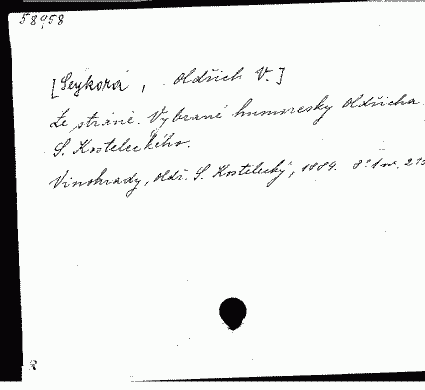 58958
[Seykora, Oldřich V.]
Ze stráně. Vybrané humoresky Oldřicha
S. Kosteleckého.
Vinohrady, Oldř. S. Kostelecký, 1889. 8° 1 sv.
R